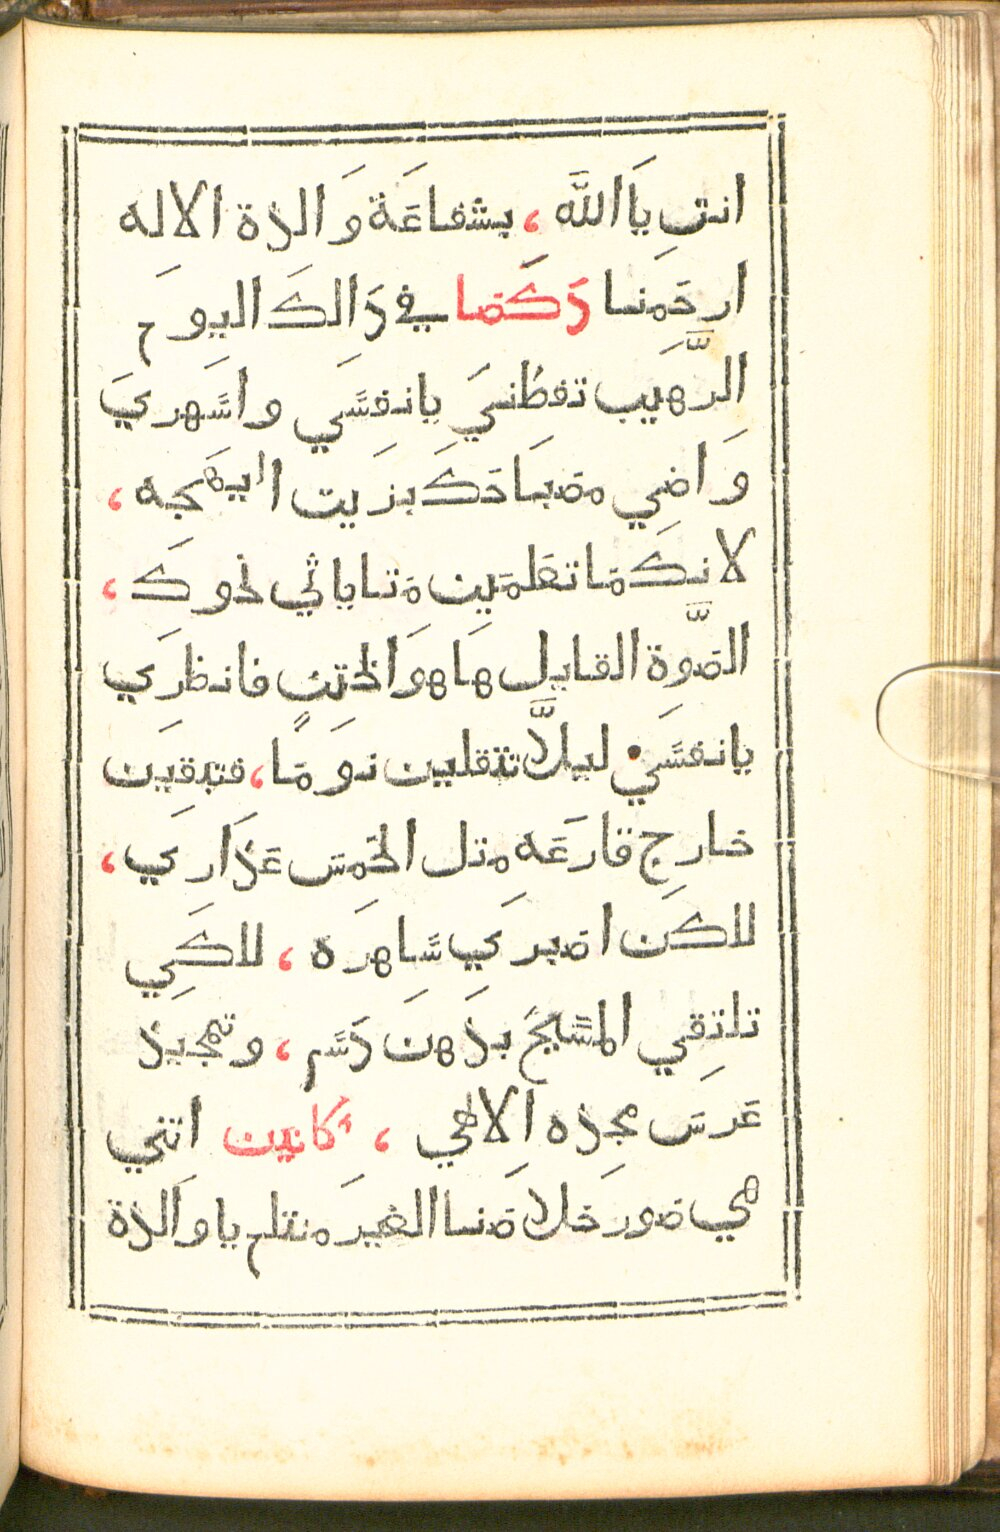 انت يَا اللَّه ، بشفاعَة وَالدة الاله
ارحَمنا دَكصَا في ذَالكَ اليوم
الرَّهيب تفطنيَ يانفسَي واسَهريَ
وَاضي مصبَاحَكَ بزَيت البهَجه ،
لانكَ مَا تعَلمَين مَتا ياتي نحوكَ ،
الصَّوة القايل هَا هوَ الختن فانظرَي
يانفسَي ليلاَّ تثقلين نومًا ، فتبقيَن
خارجِ قارعَه مثل الخمسَ عَذَارَي ،
لاكَن اصبرَي سَاهرَه ، لاكَي
تلتقِي المسَيحَ بدَهنَ دَسَم ، وتهجيد
عَرسَ مجده الالَهي ، كانين انتي
هي صور خَلاصَنا الغيرَ منثلم يا وَالدة